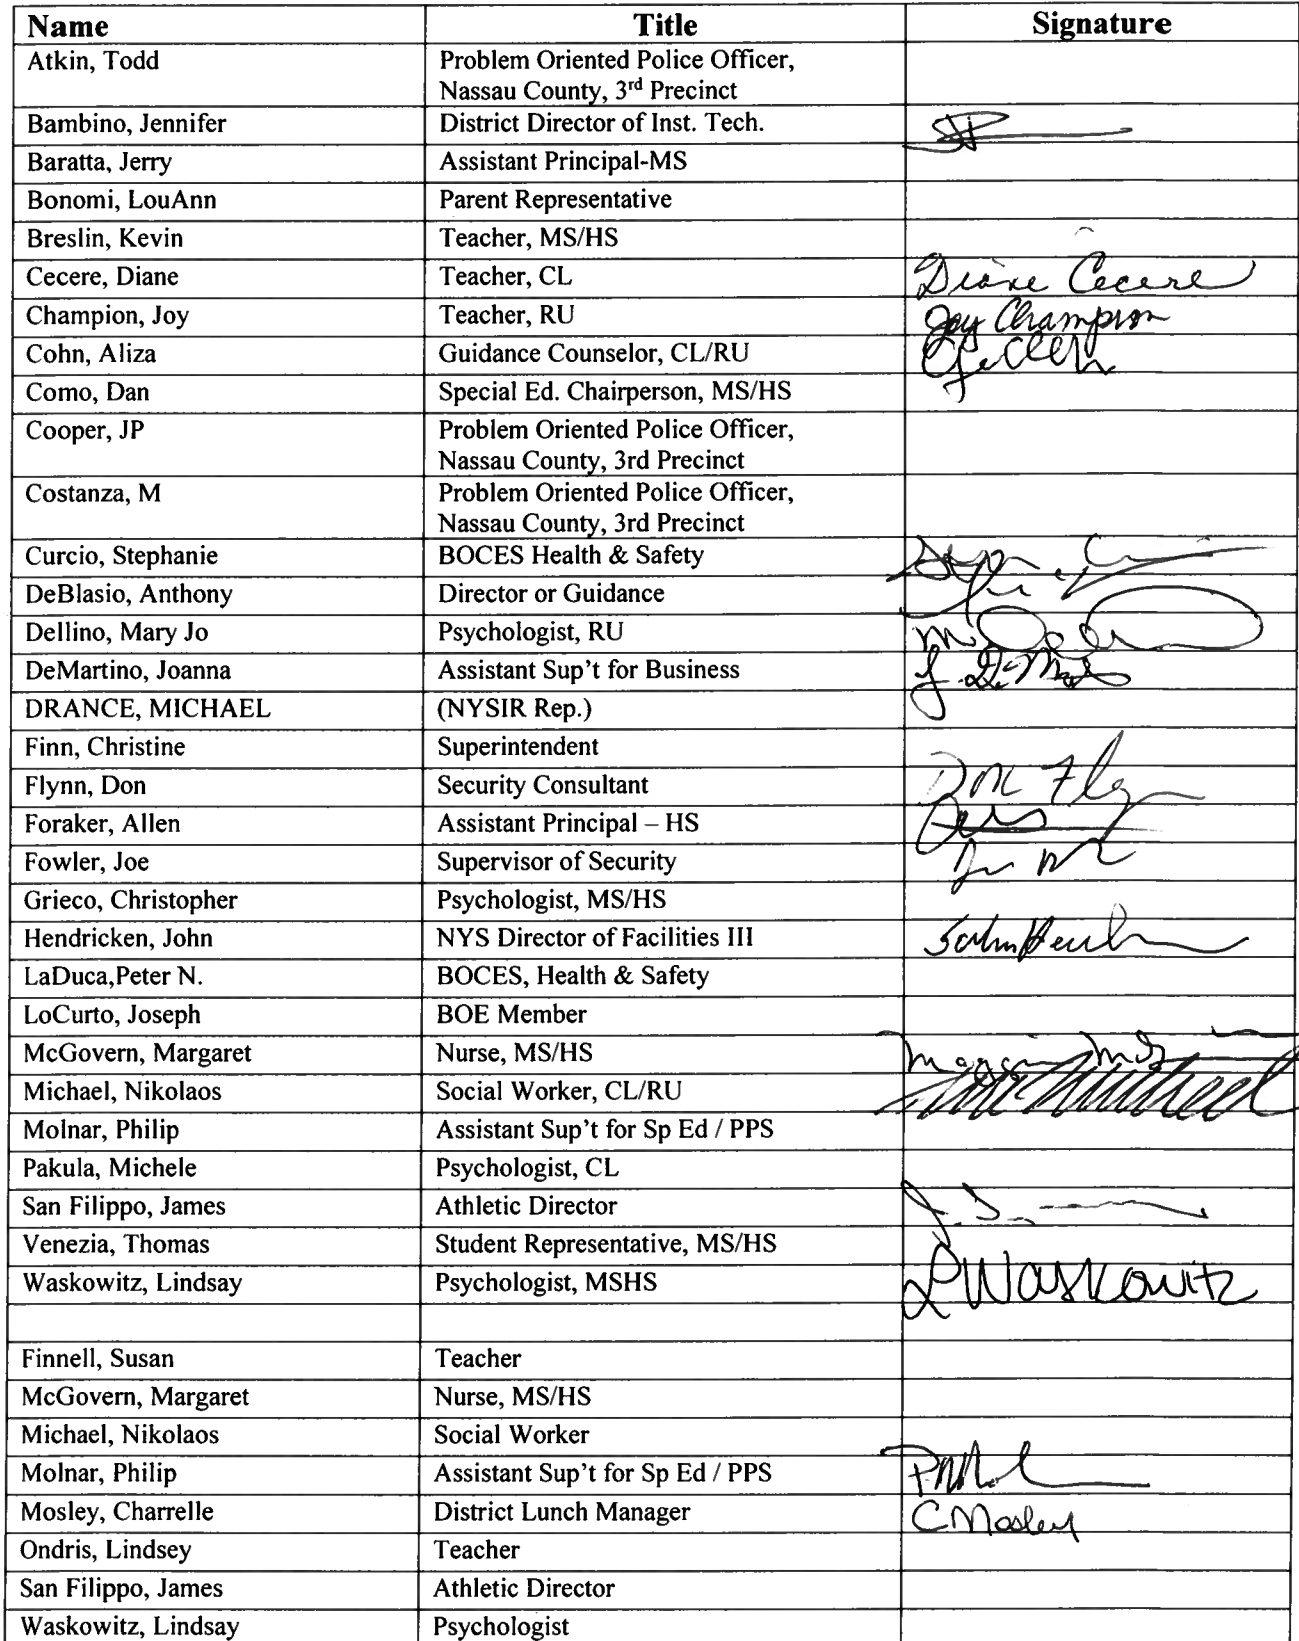 Name Title Signature
Atkin, Todd Problem Oriented Police Officer,
Nassau County, 3rd Precinct
Bambino, Jennifer District Director of Inst. Tech.
Baratta, Jerry Assistant Principal-MS
Bonomi, LouAnn Parent Representative
Breslin, Kevin Teacher, MS/HS
Cecere, Diane Teacher, CL Diane Cecere
Champion, Joy Teacher, RU Joy Champion
Cohn, Aliza Guidance Counselor, CL/RU
Como, Dan Special Ed. Chairperson, MS/HS
Cooper, JP Problem Oriented Police Officer,
Nassau County, 3rd Precinct
Costanza, M Problem Oriented Police Officer,
Nassau County, 3rd Precinct
Curcio, Stephanie BOCES Health & Safety
DeBlasio, Anthony Director or Guidance
Dellino, Mary Jo Psychologist, RU
DeMartino, Joanna Assistant Sup't for Business
DRANCE, MICHAEL (NYSIR Rep.)
Finn, Christine Superintendent
Flynn, Don Security Consultant Don Flyn
Foraker, Allen Assistant Principal – HS
Fowler, Joe Supervisor of Security
Grieco, Christopher Psychologist, MS/HS
Hendricken, John NYS Director of Facilities III
LaDuca,Peter N. BOCES, Health & Safety
LoCurto, Joseph BOE Member
McGovern, Margaret Nurse, MS/HS
Michael, Nikolaos Social Worker, CL/RU
Molnar, Philip Assistant Sup't for Sp Ed / PPS
Pakula, Michele Psychologist, CL
San Filippo, James Athletic Director
Venezia, Thomas Student Representative, MS/HS
Waskowitz, Lindsay Psychologist, MSHS LWaskowitz
Finnell, Susan Teacher
McGovern, Margaret Nurse, MS/HS
Michael, Nikolaos Social Worker
Molnar, Philip Assistant Sup't for Sp Ed / PPS
Mosley, Charrelle District Lunch Manager CMosley
Ondris, Lindsey Teacher
San Filippo, James Athletic Director
Waskowitz, Lindsay Psychologist